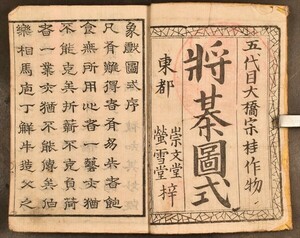 五代目大橋宗桂作物
將棊圖式
東都
崇文堂
螢雪堂
梓
象戲圖式序
凡有難得者有易失者飽
食無所用心者一藝女猶
不能克美折薪不克負荷
者一業女猶不能傳美伯
樂相馬庖丁解牛造父之